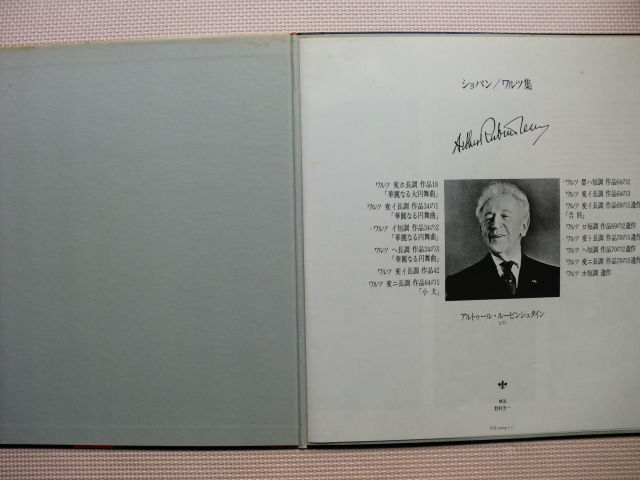 ショパン／ワルツ集
Arthur Rubinstein
ワルツ 変ホ長調 作品18
「華麗なる大円舞曲」
ワルツ 変イ長調 作品34の1
「華麗なる円舞曲」
ワルツ イ短調 作品34の2
「華麗なる円舞曲」
ワルツ ヘ長調 作品34の3
「華麗なる円舞曲」
ワルツ 変イ長調 作品42
ワルツ 変ニ長調 作品64の1
「小犬」
ワルツ 嬰ハ短調 作品64の2
ワルツ 変イ長調 作品64の3
ワルツ 変イ長調 作品69の1遺作
「告別」
ワルツ ロ短調 作品69の2遺作
ワルツ 変ト長調 作品70の1遺作
ワルツ ヘ短調 作品70の2遺作
ワルツ 変ニ長調 作品70の3遺作
ワルツ ホ短調 遺作
アルトゥール・ルービンシュタイン
ピアノ
解説
野村光一